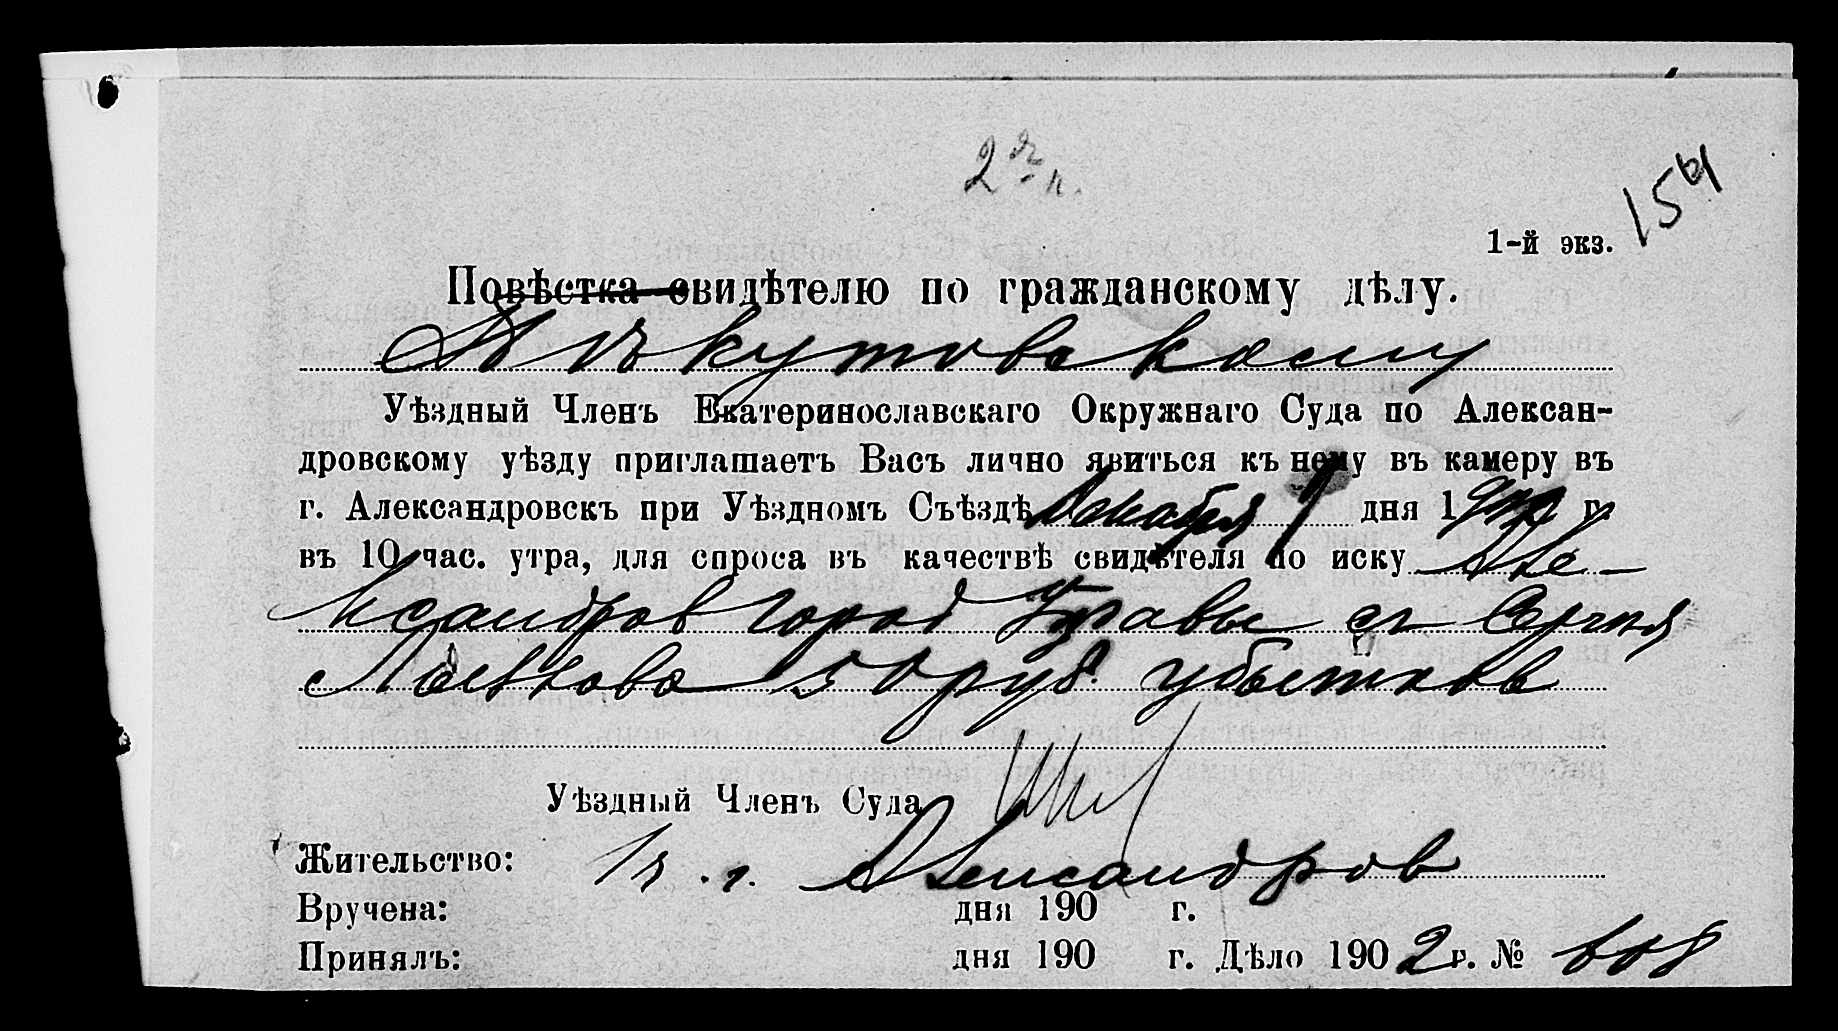 154
1-й экз.
Повѣстка свидѣтелю по гражданскому дѣлу.
Уѣздный Членъ Екатеринославскаго Окружнаго Суда по Алексан-
дровскому уѣзду приглашаетъ Васъ лично явиться къ нему въ камеру въ
г. Александровскъ при Уѣздномъ Съѣздѣ Декабря дня 1 г.
въ 10 час. утра, для спроса въ качествѣ свидѣтеля по иску Але-
ксандров город Управы съ Сергѣя
50 руб. убытков
Уѣздный Членъ Суда
Жительство: г. Александров
Вручена: дня 190 г.
Принялъ: дня 190 г. Дѣло 1902 г. №